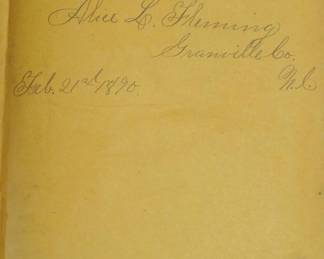 Alice L. Fleming
Granville Co.
N.C
Feb. 21st 1890.